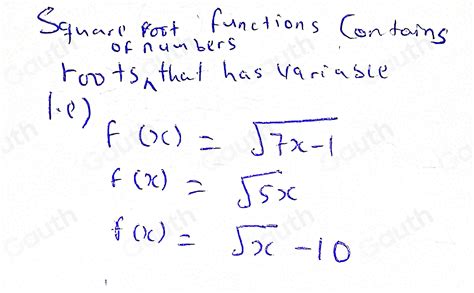 Square root functions Contains
of numbers
roots ^ that has variable
i.e)
f(x) = √7x-1
f(x) = √5x
f(x) = √x - 10